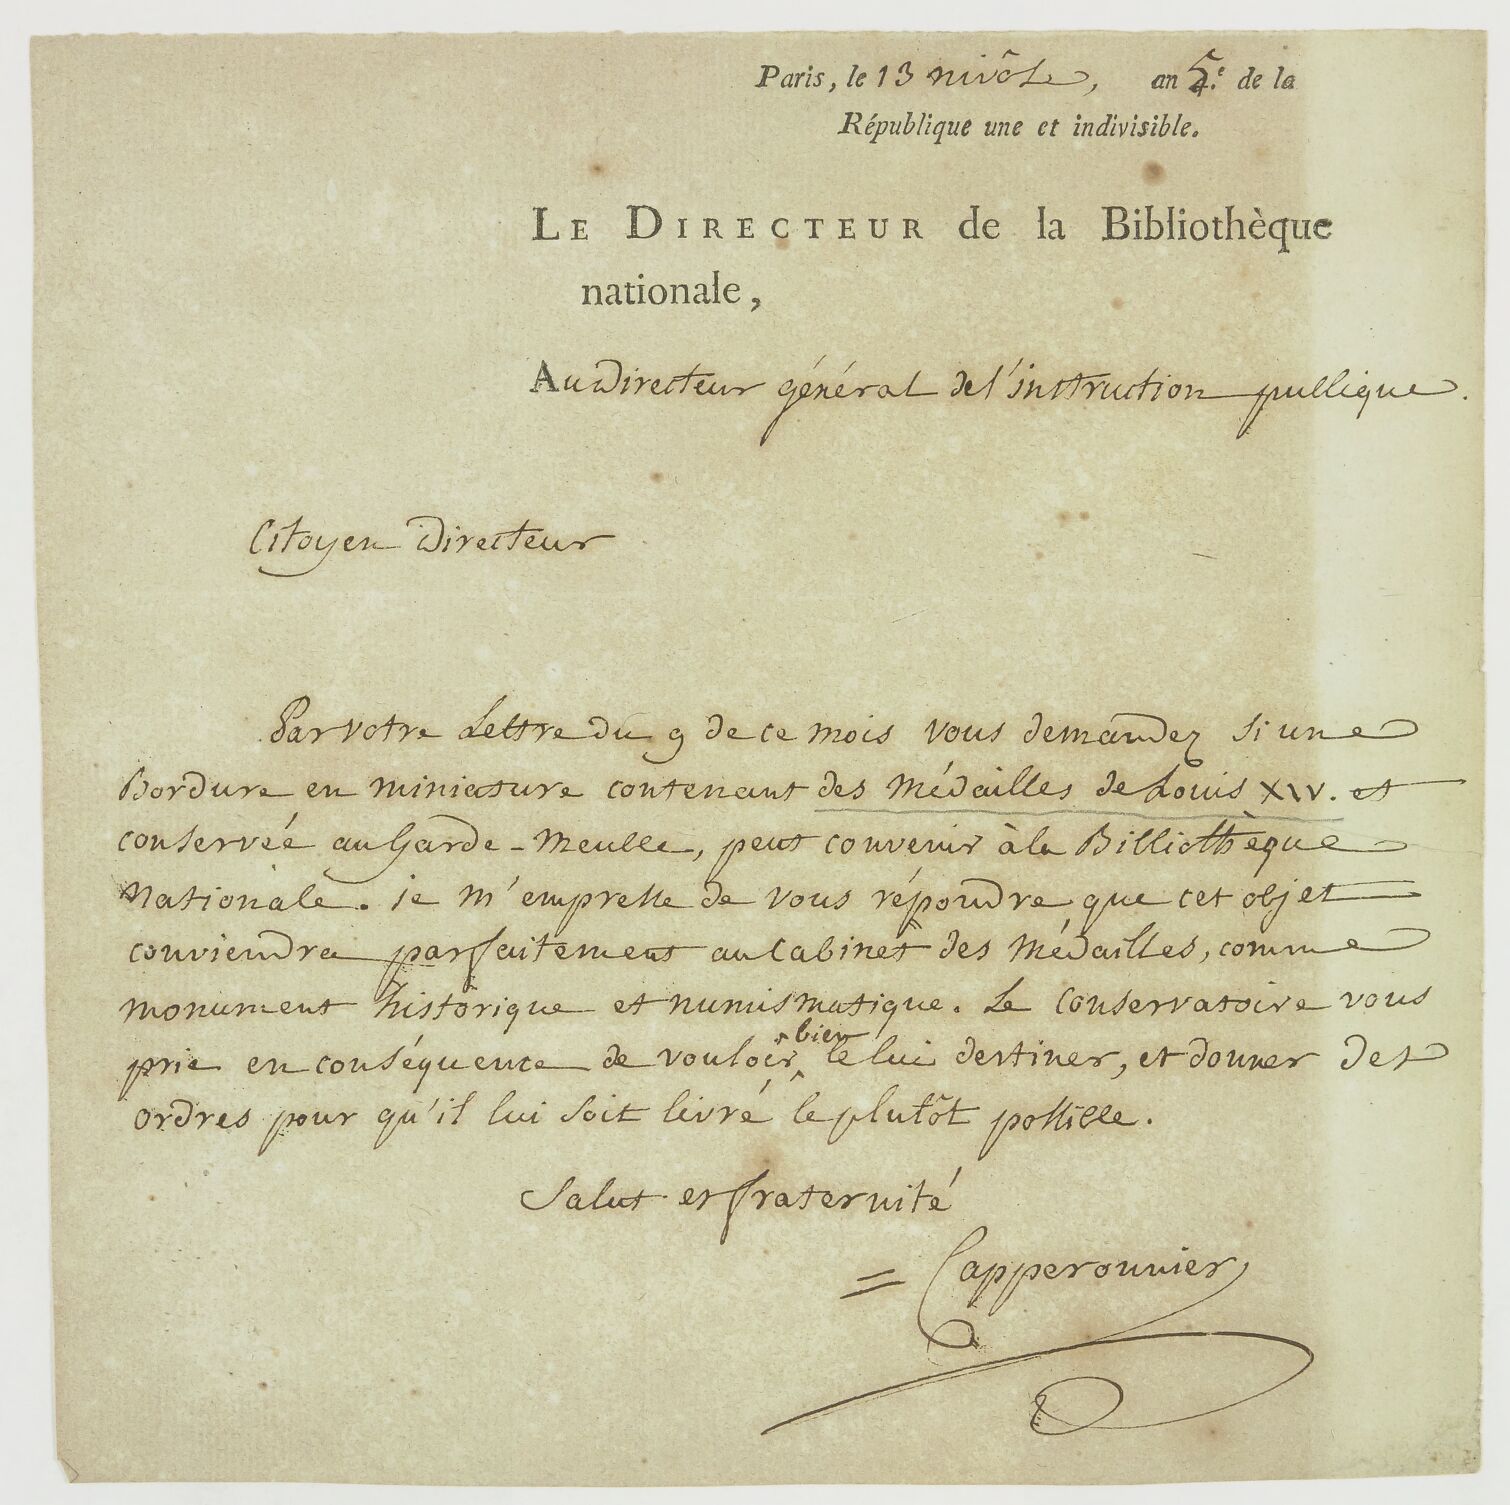 Paris, le 13 nivôse, an 5.e de la
République une et indivisible.
LE DIRECTEUR de la Bibliothèque
nationale,
Au Directeur général de l'instruction publique.
Citoyen Directeur
Par votre Lettre du 9 de ce mois vous demandez si une
Bordure en miniature contenant des Médailles de Louis XIV. et
conservée au Garde-Meuble, peut convenir à la Bibliothèque
Nationale. je m'empresse de vous répondre que cet objet
conviendra parfaitement au Cabinet des Médailles, comme
monument historique et numismatique. Le Conservatoire vous
prie en conséquence de vouloir bien le lui destiner, et donner des
ordres pour qu'il lui soit livré le plutôt possible.
Salut et fraternité
= Capperonnier